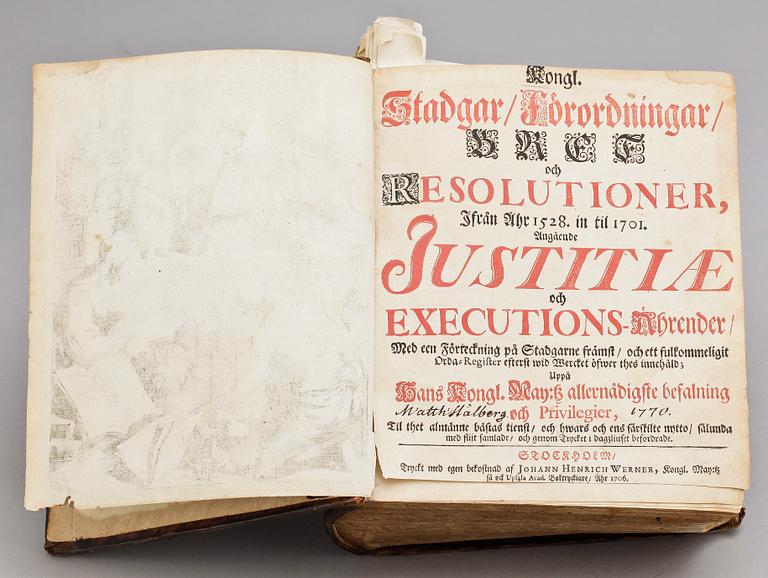 Kongl.
Stadgar/ Förordningar/
BREF
och
RESOLUTIONER,
Ifrån Ahr 1528. in til 1701.
Angående
JUSTITIÆ
och
EXECUTIONS-Ährender/
Med een Förteckning på Stadgarne främst/ och ett fulkommeligit
Orda-Register efterst wid Wercket öfwer thes innehåld;
Uppå
Hans Kongl. May:tz allernådigste befalning
Matth Hålberg. och Privilegier, 1770.
Til thet almänne bästas tienst/ och hwars och ens särskilte nytto/ sålunda
med flijt samlade/ och genom Trycket i dagzliuset befordrade.
STOCKHOLM/
Tryckt med egen bekostnad af JOHANN HENRICH WERNER, Kongl. May:tz
så ock Upsala Acad. Boktryckiare/ Åhr 1706.